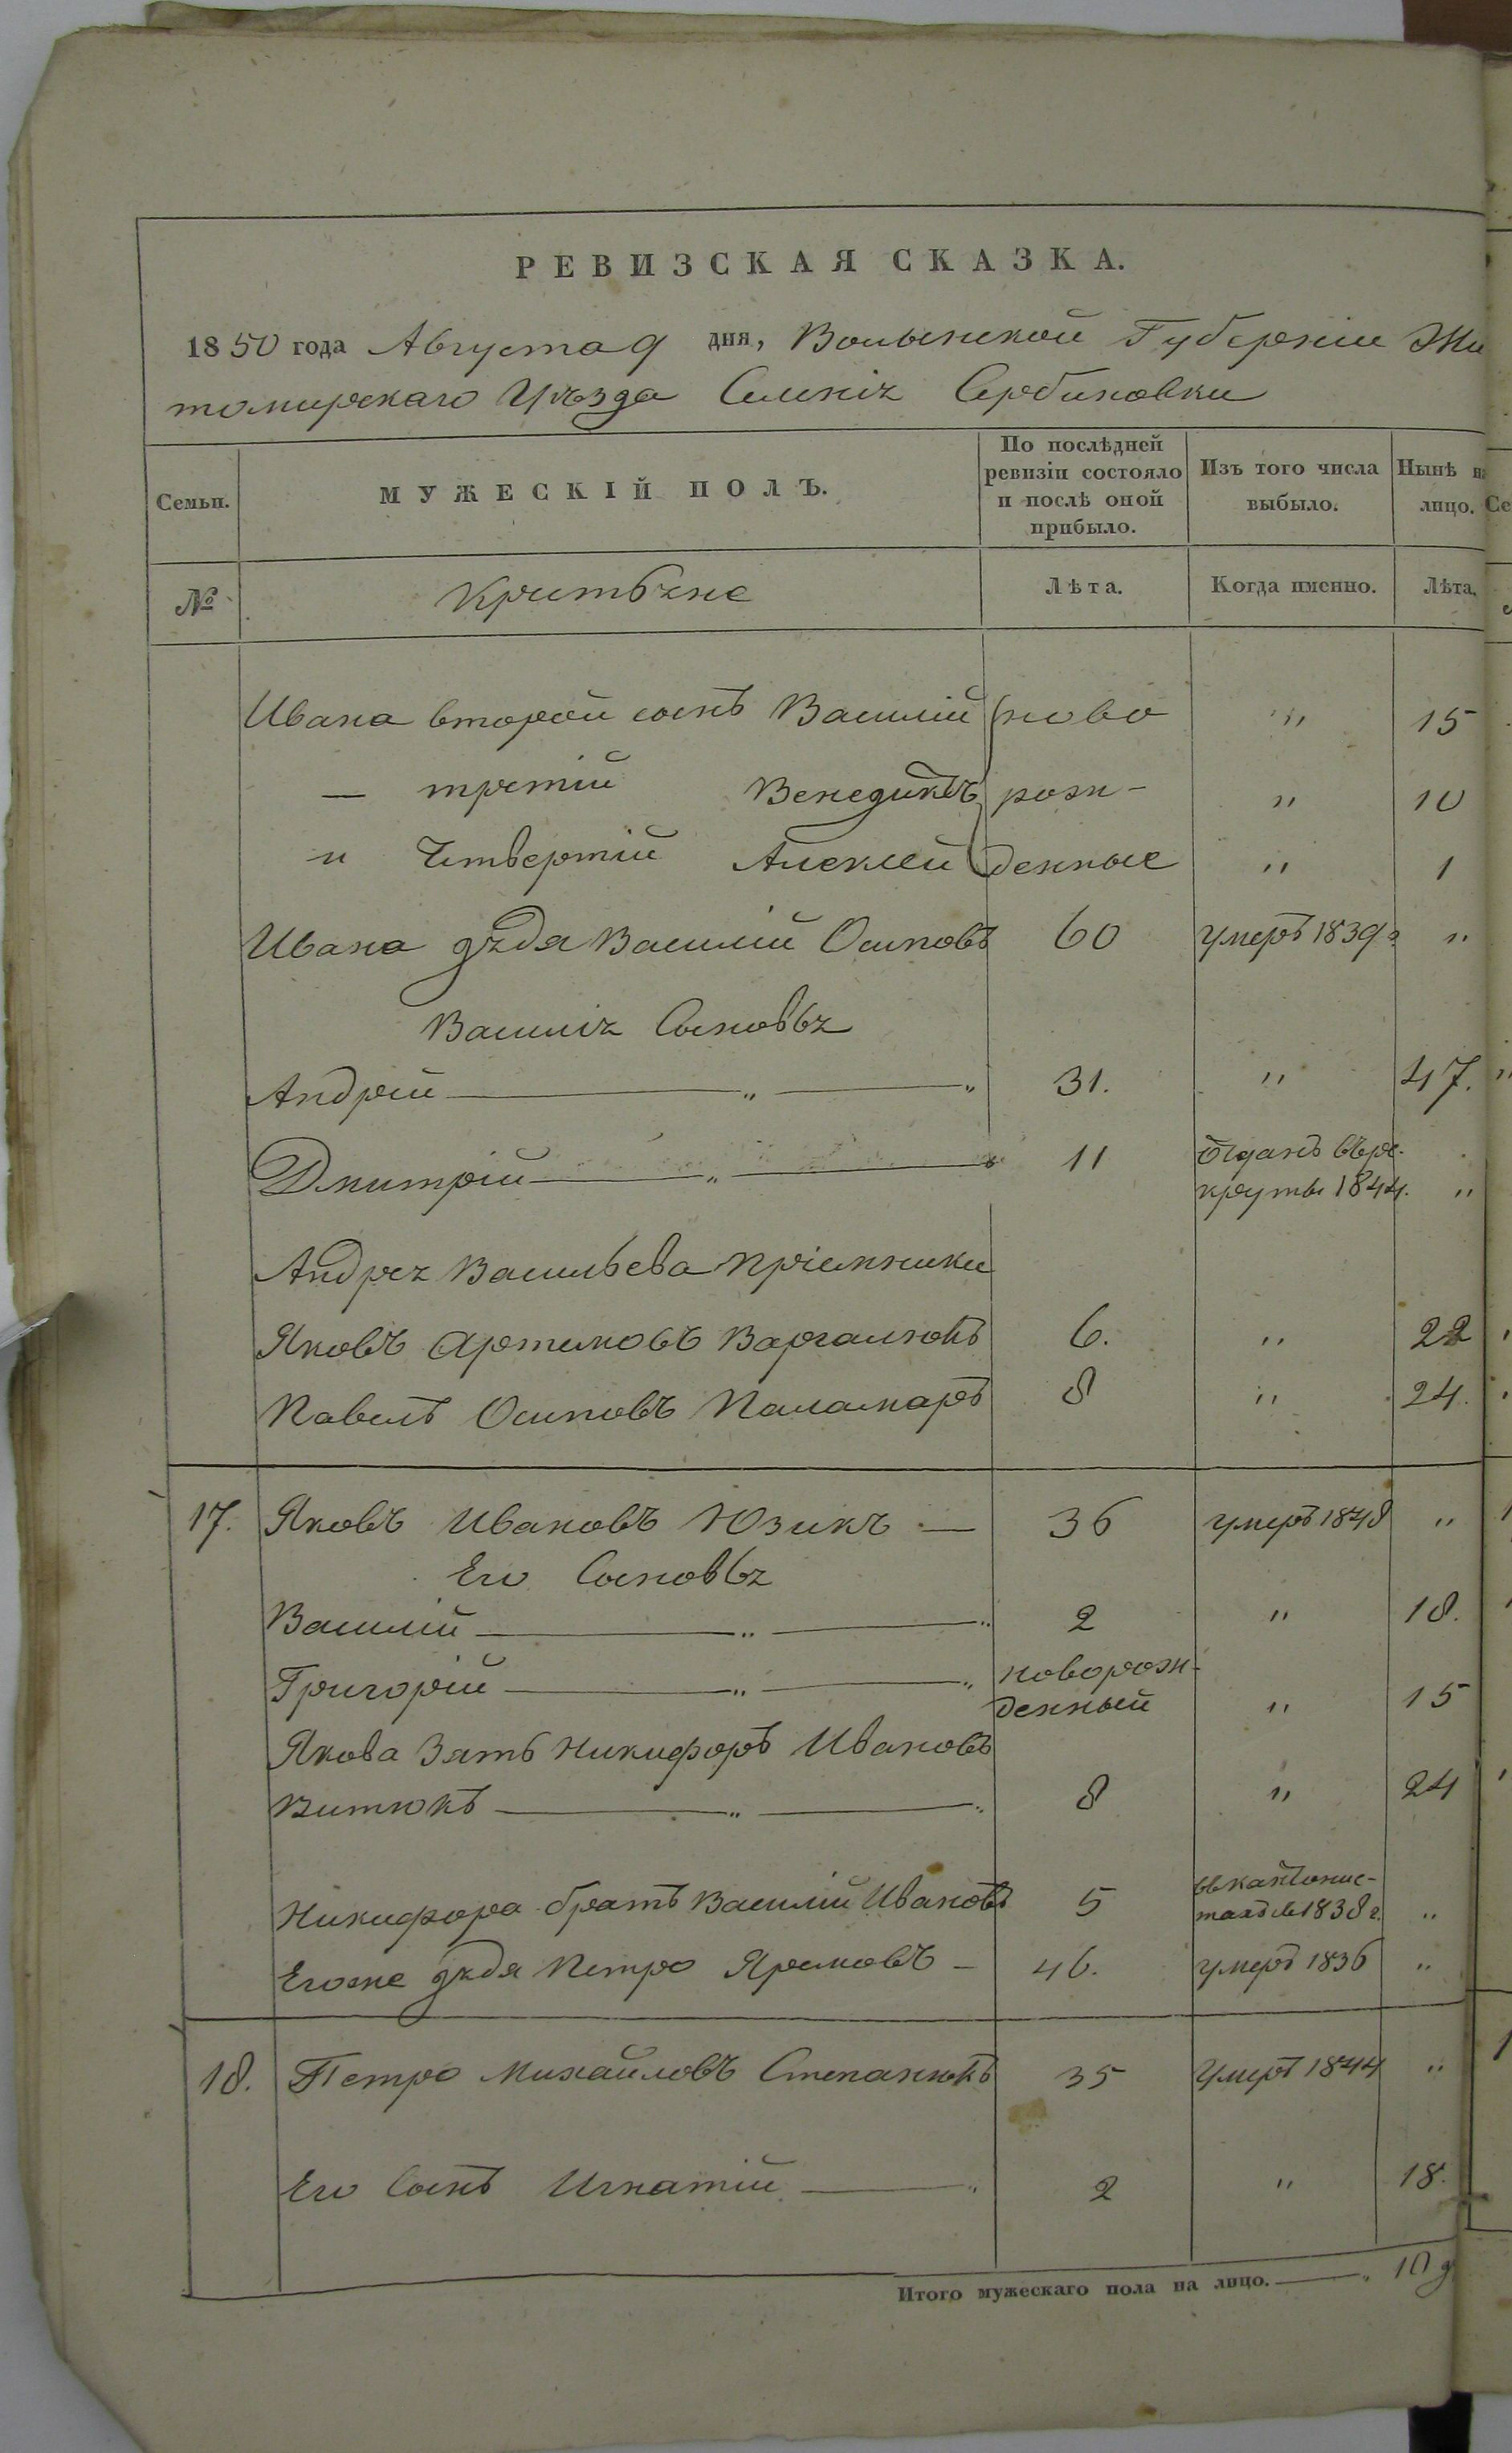 РЕВИЗСКАЯ СКАЗКА.
1850 года Августа 9 дня, Волынской Губерніи Жи
томирскаго Уѣзда Селенія Сербиновки
Семьи. МУЖЕСКІЙ ПОЛЪ. По послѣдней ревизіи состояло и послѣ оной прибыло. Изъ того числа выбыло. Нынѣ на лицо.
№ Крестьяне Лѣта. Когда именно. Лѣта.
Ивана второй сынъ Василій ново " 15
— третій Венедиктъ рож- " 10
" Четвертій Алексей денные " 1
Ивана дядя Василій Осиповъ 60 умеръ 1839 г "
Василія Сыновья
Андрей — " — " 31. " 47.
Дмитрій — " — " 11 Отданъ въ ре-
круты 1844. "
Андрея Васильева пріемники
Яковъ Артемовъ Варгалюкъ 6. " 22
Павелъ Осиповъ Паламаръ 8 " 24.
17. Яковъ Ивановъ Юзикъ — 36 умеръ 1848 "
Его Сыновья
Василій — " — " 2 " 18.
Григорій — " — " новорож-
денный " 15
Якова Зять Никифоръ Ивановъ
Витюкъ — " — " 8 " 24
Никифора братъ Василій Ивановъ 5 въ кантонис-
тахъ съ 1838 г. "
Егоже дядя Петро Яремовъ — 46. умеръ 1836 "
18. Петро Михайловъ Степанюкъ 35 Умеръ 1844 "
Его Сынъ Игнатій — " 2 " 18.
Итого мужескаго пола на лицо. — " 10 д